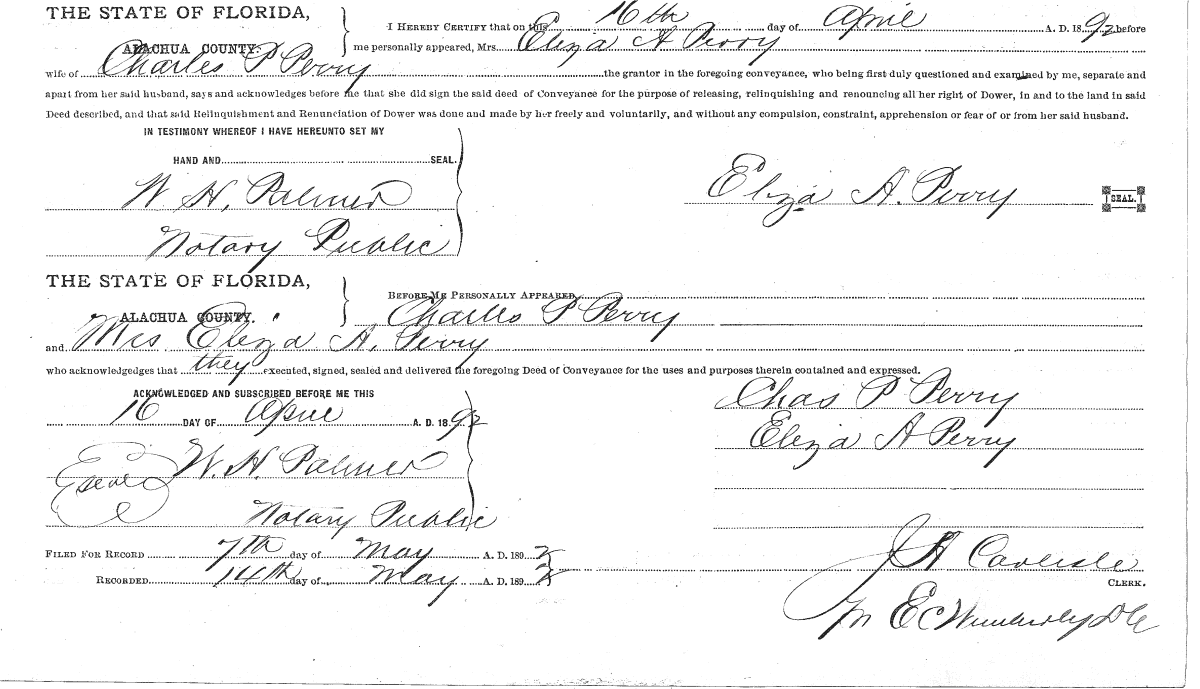 THE STATE OF FLORIDA,
ALACHUA COUNTY.
I HEREBY CERTIFY that on this 16th day of April A. D. 1892 before
me personally appeared, Mrs. Eliza A Perry
wife of Charles P Perry the grantor in the foregoing conveyance, who being first duly questioned and examined by me, separate and
apart from her said husband, says and acknowledges before me that she did sign the said deed of Conveyance for the purpose of releasing, relinquishing and renouncing all her right of Dower, in and to the land in said
Deed described, and that said Relinquishment and Renunciation of Dower was done and made by her freely and voluntarily, and without any compulsion, constraint, apprehension or fear of or from her said husband.
IN TESTIMONY WHEREOF I HAVE HEREUNTO SET MY
HAND AND SEAL.
W. H. Palmer
Notary Public
Eliza A. Perry
SEAL.
THE STATE OF FLORIDA,
ALACHUA COUNTY.
BEFORE ME PERSONALLY APPEARED
Charles P Perry
and Mrs Eliza A. Perry
who acknowledges that they executed, signed, sealed and delivered the foregoing Deed of Conveyance for the uses and purposes therein contained and expressed.
ACKNOWLEDGED AND SUBSCRIBED BEFORE ME THIS
16 DAY OF April A. D. 1892
seal W. H. Palmer
Notary Public
Chas P Perry
Eliza A Perry
FILED FOR RECORD 7th day of May A. D. 1892
RECORDED 14th day of May A. D. 1892
J H Carlisle
CLERK.
E C Wimberly DC